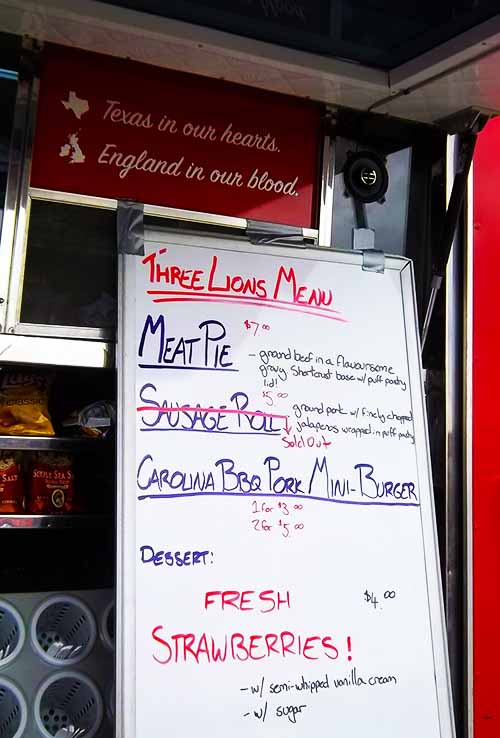 Texas in our hearts.
England in our blood.
THREE LIONS MENU
MEAT PIE $7.00
- ground beef in a flavoursome
gravy. Shortcrust base w/ puff pastry
lid!
SAUSAGE ROLL $5.00
ground pork w/ finely chopped
jalapenos wrapped in puff pastry
Sold Out
CAROLINA BBQ PORK MINI-BURGER
1 for $3.00
2 for $5.00
DESSERT:
FRESH $4.00
STRAWBERRIES!
- w/ semi-whipped vanilla cream
- w/ sugar
CLASSIC
SIMPLY SEA S